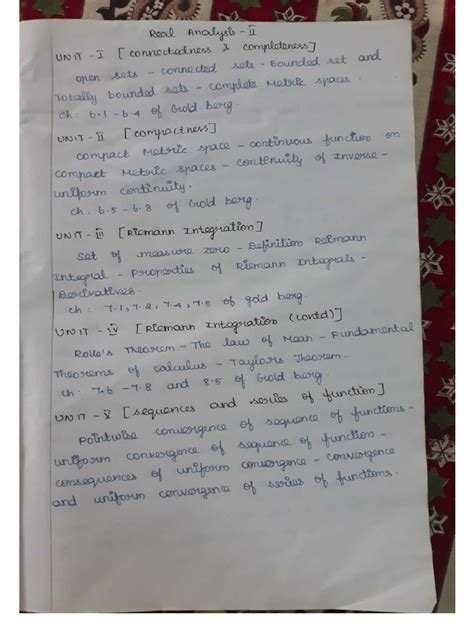 Real Analysis - II
UNIT - I [connectedness & completeness]
open sets - connected sets - Bounded set and
Totally bounded sets - complete Metric spaces.
ch: 6.1 - 6.4 of Gold berg.
UNIT - II [compactness]
compact Metric space - continuous function on
compact Metric spaces - continuity of Inverse -
uniform continuity.
ch: 6.5 - 6.8 of Gold berg.
UNIT - III [Riemann Integration]
Set of measure zero - Definition Reimann
Integral - Properties of Riemann Integrals -
Derivatives.
ch: 7.1, 7.2, 7.4, 7.5 of gold berg.
UNIT - IV [Riemann Integration (contd)]
Rolle's Theorem - The law of Mean - Fundamental
Theorems of calculus - Taylors Theorem.
ch: 7.6 - 7.8 and 8.5 of Gold berg.
UNIT - V [sequences and series of function]
Pointwise convergence of sequence of functions -
uniform convergence of sequence of function -
consequences of uniform convergence - convergence
and uniform convergence of series of functions.